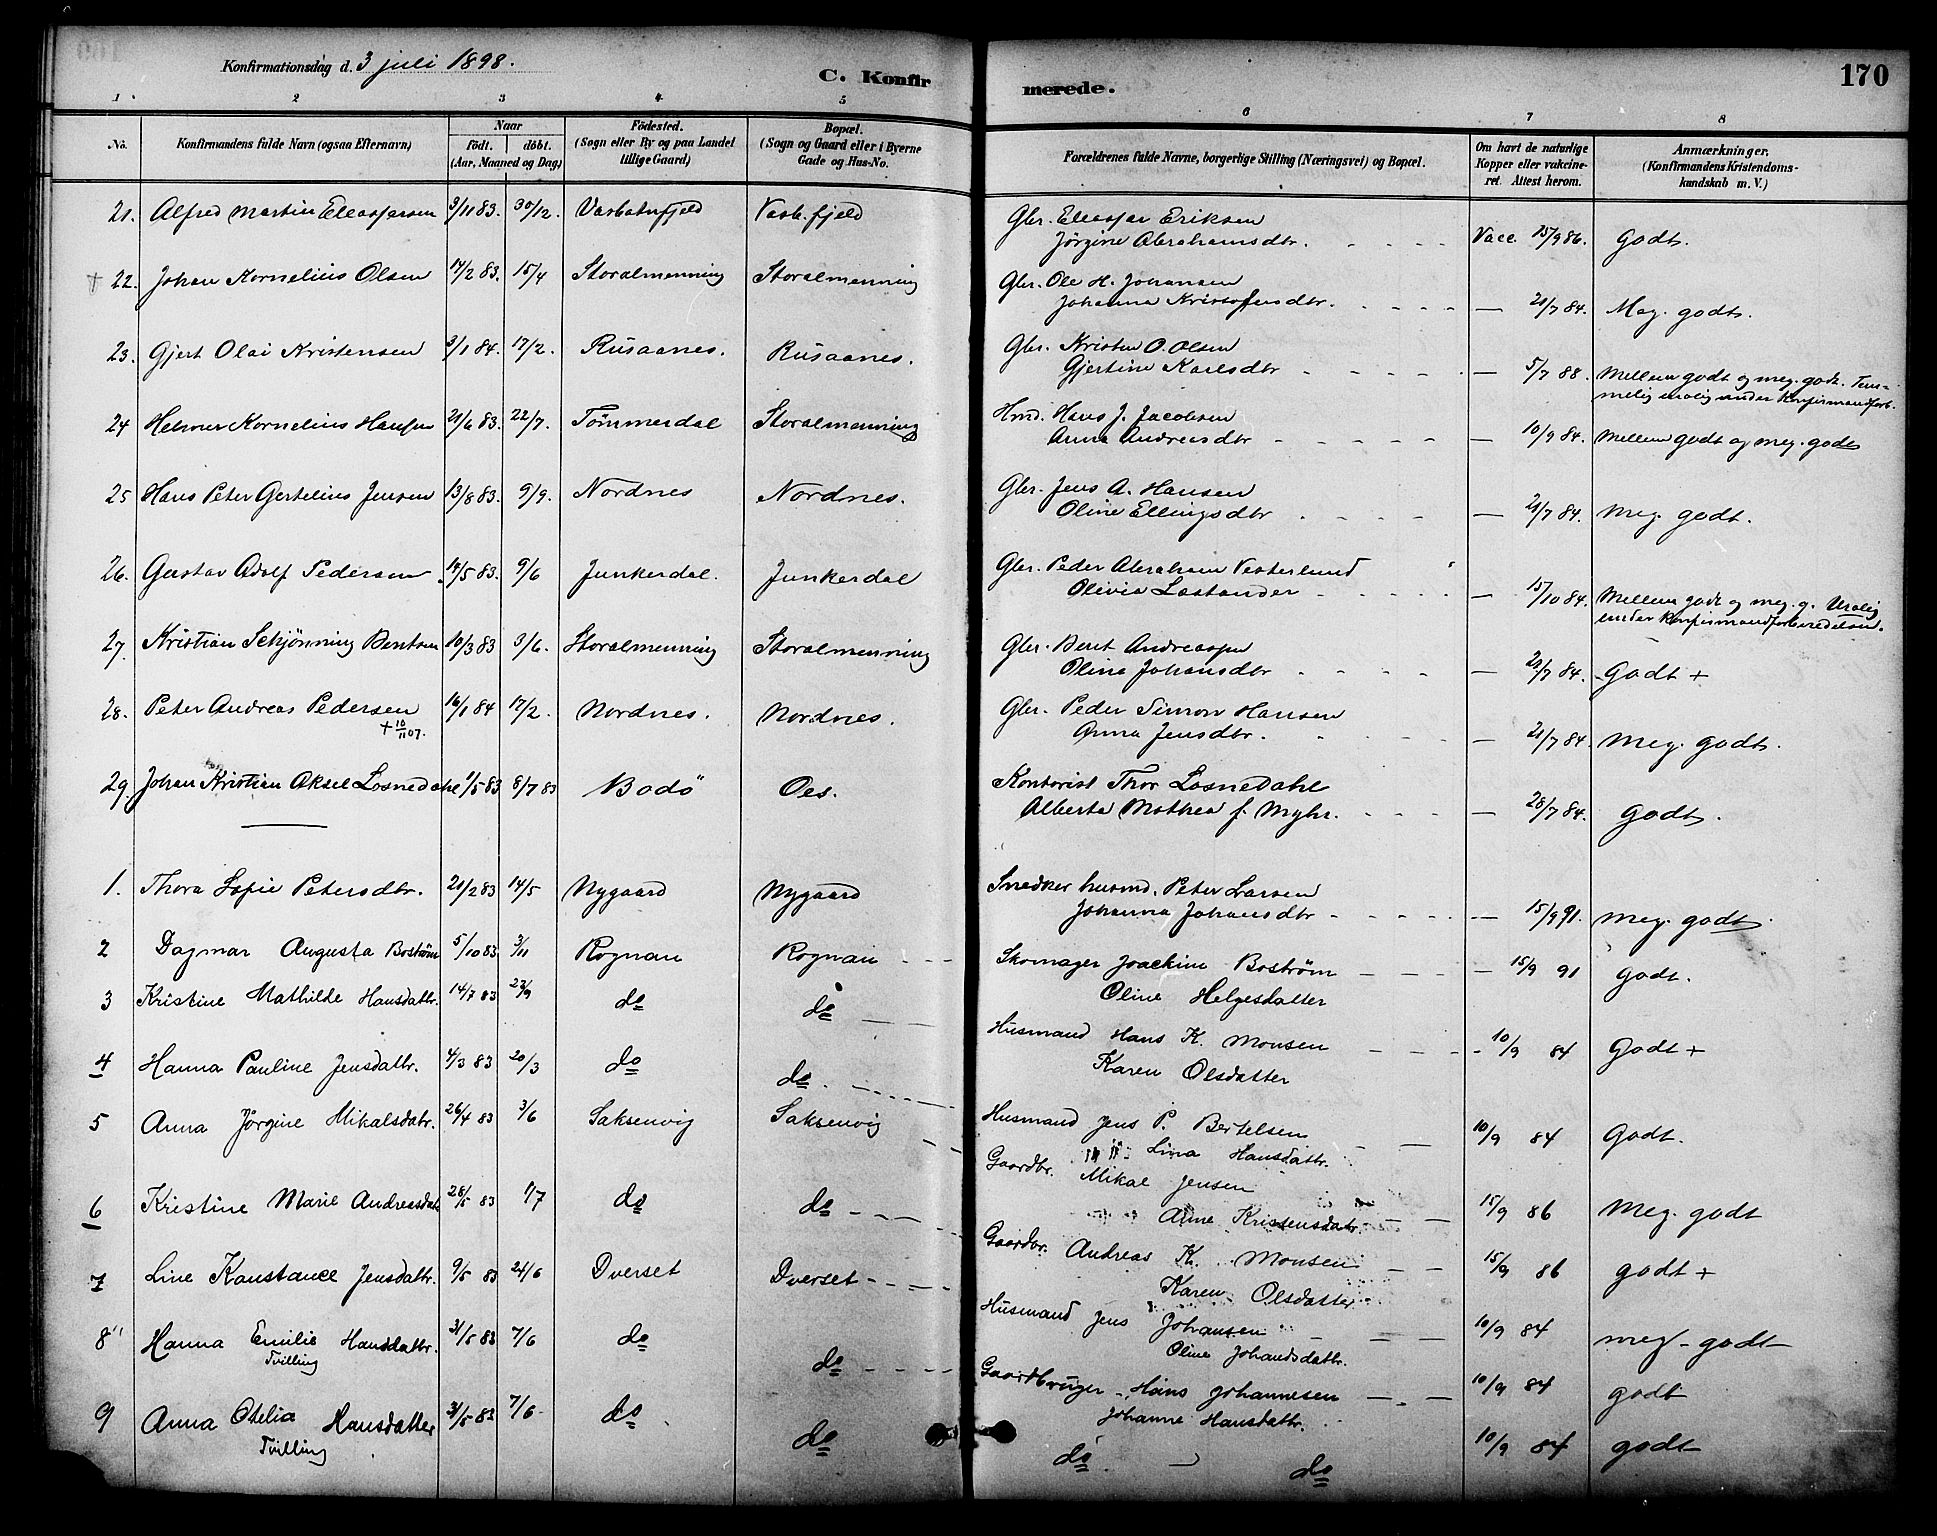 Konfirmationsdag d. 3 juli 1898.
C. Konfirmerede.
170
1 2 3 4 5 6 7 8
No. Konfirmandens fulde Navn (ogsaa Efternavn) Naar født. døbt. (Aar, Maaned og Dag) Fødested. (Sogn eller By og paa Landet tillige Gaard) Bopæl. (Sogn og Gaard eller i Byerne Gade og Hus-No. Forældrenes fulde Navne, borgerlige Stilling (Næringsvei) og Bopæl. Om havt de naturlige Kopper eller vakcineret. Attest herom. Anmærkninger. (Konfirmandens Kristendomskundskab m. V.)
21. Alfred Martin Eleassarsen 3/11 83. 30/12. Vasbotnfjeld Vasb.fjeld Gbr. Eleassar Eriksen
Jørgine Abrahamsdtr. Vacc. 15/9 86. Godt.
22. Johan Kornelius Olsen 14/2 83. 15/4 Storalmenning Storalmenning Gbr. Ole H. Johansen
Johanna Kristofersdtr. — 21/7 84. Meg. godt.
23. Gjert Olai Kristensen 3/1 84. 17/2. Rusaanes. Rusaanes. Gbr. Kristen O. Olsen
Gjertine Karlsdtr — 5/7 88. Mellem godt og meg. godt. Tem-
melig urolig under Konfirmandforb.
24 Helmer Kornelius Hansen 21/6 83. 22/7. Tømmerdal Storalmenning Hmd. Hans J. Jacobsen
Anna Andreasdtr — 10/9 84. Mellem godt og meg. godt
25 Hans Peter Gertelius Jensen 13/8 83. 9/9. Nordnes Nordnes. Gbr. Jens A. Hansen
Oline Ellingsdtr — 21/7 84. Meg. godt.
26. Gustav Adolf Pedersen 14/5 83. 9/6 Junkerdal. Junkerdal Gbr. Peder Abraham Vesterlund
Olivia Lastander — 15/10 84. Mellem godt og meg. g. Urolig
under Konfirmandforberedelsen.
27. Kristian Schjønning Bentsen 10/3 83 3/6. Storalmenning Storalmenning Gbr. Bent Andreassen
Olina Johansdtr — 21/7 84. Godt +
28. Peter Andreas Pedersen 16/1 84 17/2. Nordnes. Nordnes. Gbr. Peder Simon Hansen
+ 10/11 07. Anna Jensdtr. — 21/7 84. Meg. godt.
29. Johan Kristian Aksel Losnedahl 1/5 83 8/7 83 Bodö Oes. Kontorist Thor Losnedahl
Alberta Mathea f. Myhr. — 28/7 84. Godt.
1. Thora Sofie Petersdtr. 21/2 83 14/5 Nygaard Nygaard Snedker husmd. Peter Larsen
Johanna Johansdtr — 15/9 91. Meg. godt.
2 Dagmar Augusta Boström 5/10 83 3/11 Rognan Rognan Skomager Joachim Boström — 15/9 91 Godt.
Oline Helgesdatter
3 Kristine Mathilde Hansdattr. 14/7 83 23/9 do do Husmand Hans K. Monsen 10/9 84 Godt +
Karen Olsdatter
4 Hanna Pauline Jensdattr. 4/3 83 20/3 do do Husmand Jens P. Bertelsen 10/9 84 Godt.
Lina Hansdattr.
5 Anna Jørgine Mikalsdatr. 26/4 83 3/6 Saksenvig Saksenvig Gaardbr. Mikal Jensen 15/9 86 Meg. godt
Anne Kristensdatr.
6 Kristine Marie Andreasdatr 28/5 83 1/7 do do Gaardbr. Andreas K. Monsen 15/9 86 godt +
Karen Olsdatter
7 Line Konstance Jensdattr. 9/5 83 24/6 Dverset Dverset Husmand Jens Johansen 10/9 84 meg- godt
Oline Johansdattr.
8 Hanna Emilie Hansdattr. 31/5 83 7/6 do do Gaardbruger Hans Johannesen 10/9 84 godt
Tvilling Johanne Hansdattr.
9 Anna Otelia Hansdatter 31/5 83 7/6 do do do do 10/9 84 godt
Tvilling